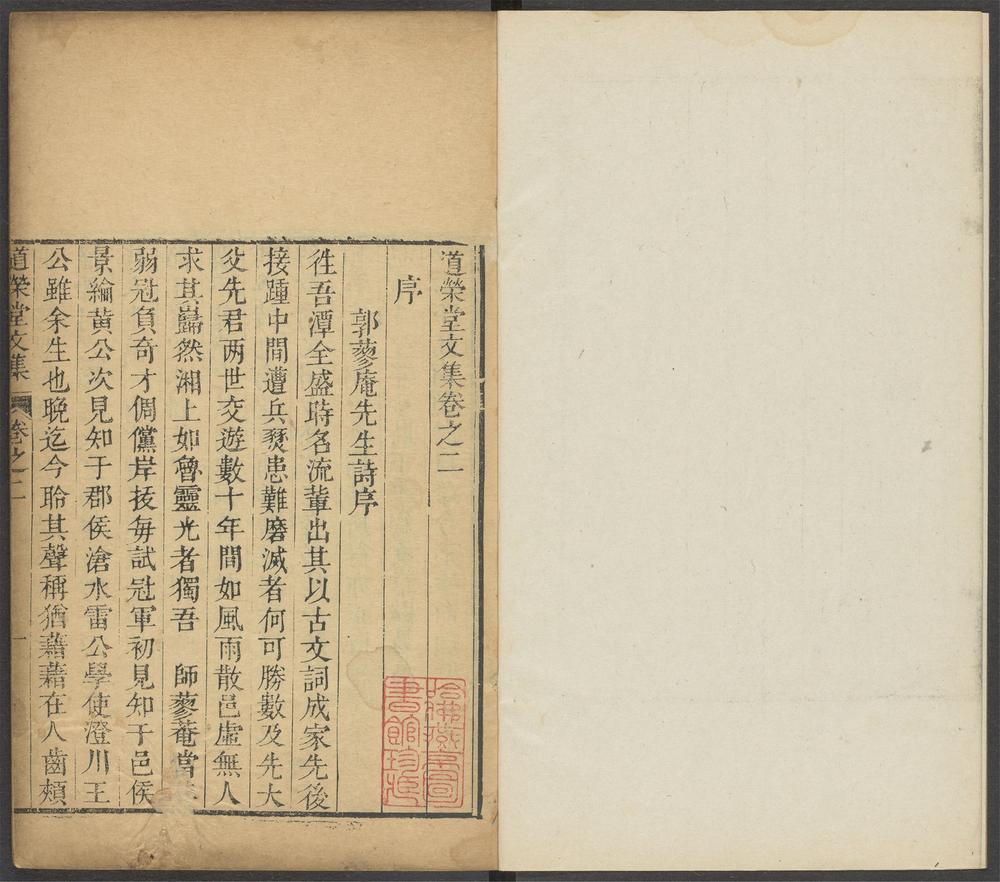 道榮堂文集卷之二
序
郭蓼庵先生詩序
徃吾潭全盛時名流輩出其以古文詞成家先後
接踵中間遭兵燹患難磨滅者何可勝數及先大
父先君两世交遊數十年間如風雨散邑虛無人
求其巋然湘上如魯靈光者獨吾 師蓼菴當
弱冠負奇才倜儻岸抜每試冠軍初見知于邑侯
景綸黄公次見知于郡侯滄水雷公學使澄川王
公雖余生也晚迄今聆其聲稱猶藉藉在人齒頰
道榮堂文集 卷之二 一
哈佛燕京圖
書館珍藏